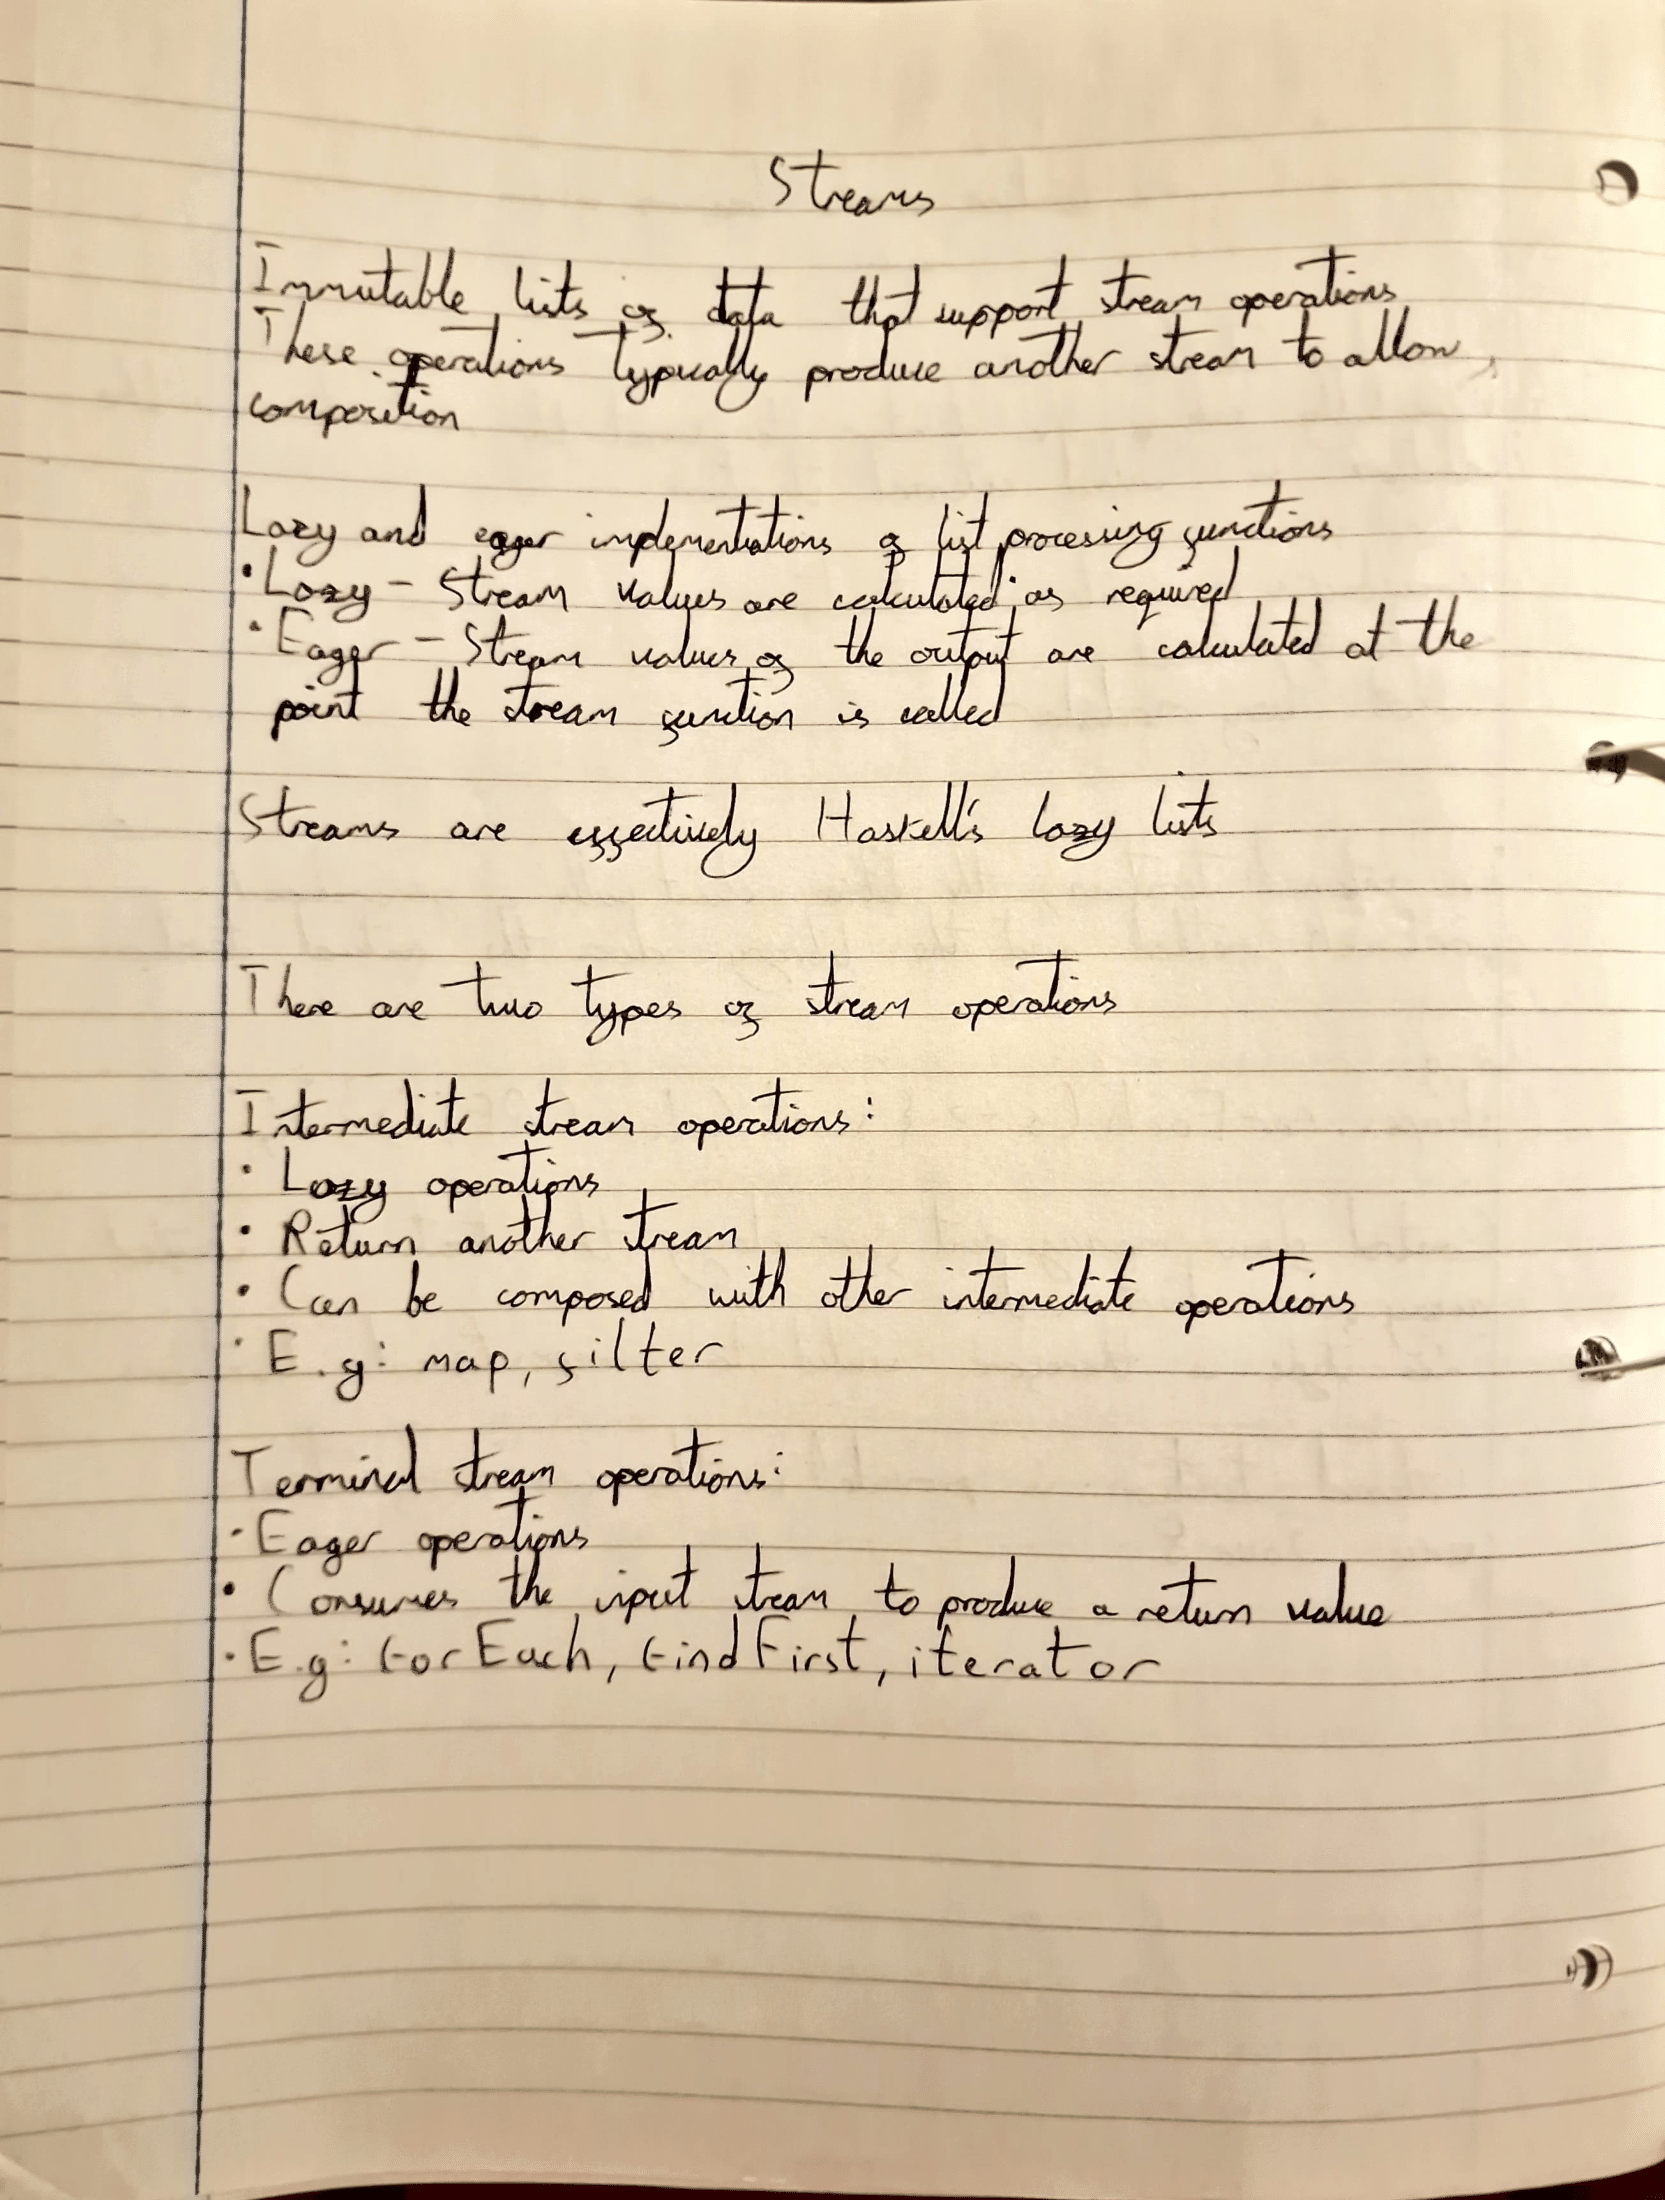 Streams
Immutable lists of data that support stream operations
These operations typically produce another stream to allow
composition
Lazy and eager implementations of list processing functions
• Lazy - Stream values are calculated as required
• Eager - Stream values of the output are calculated at the
point the stream function is called
Streams are effectively Haskell's lazy lists
There are two types of stream operations
Intermediate stream operations:
• Lazy operations
• Return another stream
• Can be composed with other intermediate operations
• E.g: map, filter
Terminal stream operations:
• Eager operations
• Consumes the input stream to produce a return value
• E.g: forEach, findFirst, iterator